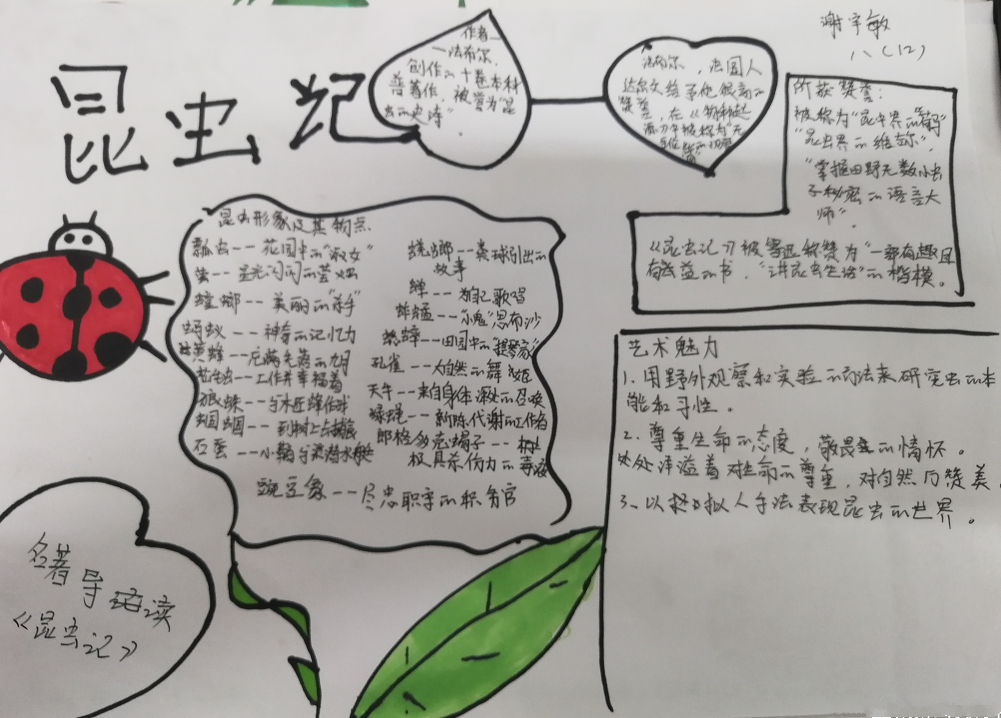 昆虫记
谢宇敏
八(12)
作者——
——法布尔,
创作的十卷本科
普著作,被誉为昆
虫的史诗".
法布尔,法国人
达尔文给予他很高的
赞誉,在《物种起
源》中被称为"无
所获赞誉:
被称为"昆虫界的荷马"
"昆虫界的维吉尔",
"掌握田野无数小虫
子秘密的语言大
师"
《昆虫记》被鲁迅称赞为"一部有趣且
有益的书,"讲昆虫生活"的楷模。
昆虫形象及其特点.
瓢虫--花园中的"淑女"
萤--星光闪闪的萤火虫
螳螂--美丽的"杀手"
蚂蚁--神奇的记忆力
充满
工作并幸福着
狼蛛--
蝈蝈--
石蚕--小鞘与潜水艇
豌豆象---尽忠职守的税务官
蜣螂--粪球引出的
故事
蝉--为自己歌唱
蟋蟀---田园中的"提琴家"
孔雀--大自然的舞姬
天牛--来自身体深处的召唤
绿蝇--新陈代谢的工作者
郎格多克蝎子--
极具杀伤力的毒液
艺术魅力
1.用野外观察和实验的方法来研究虫的本
能和习性。
2.尊重生命的态度,敬畏的情怀。
处处洋溢着对生命的尊重,对自然万赞美.
3、以拟人手法表现昆虫的世界。
名著导读
《昆虫记》